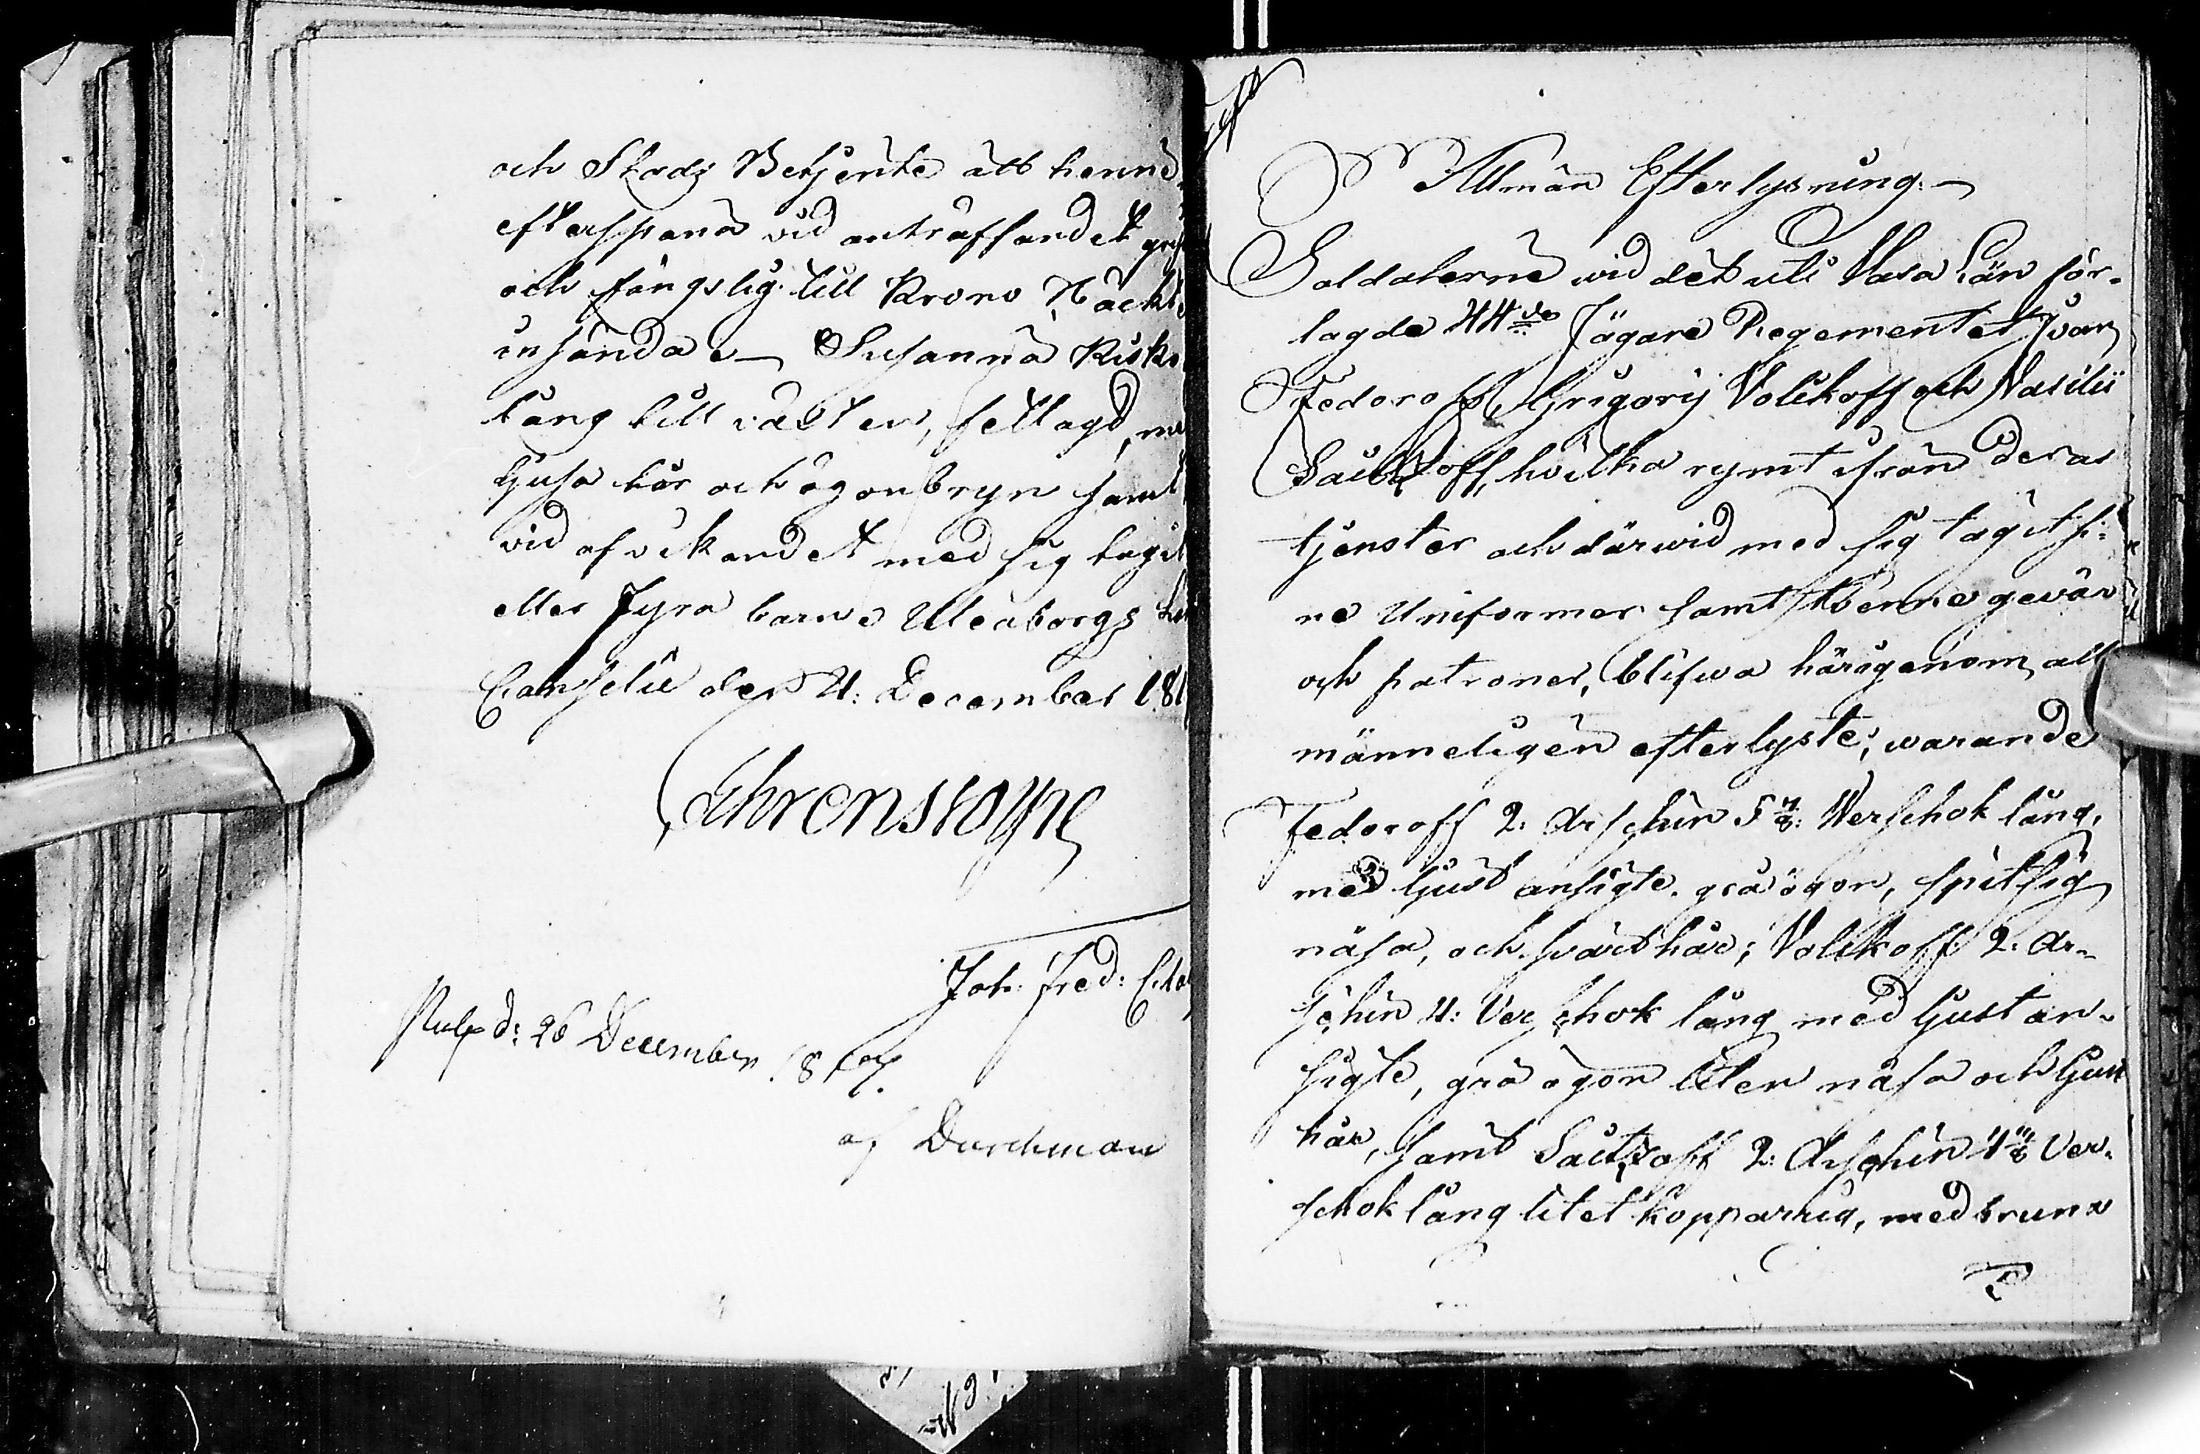 och Stads Betjente att henne
efterspana vid anträffandet
och fängslig till Krono Häckte
insända. Susanna
lång till växten, fetlagd,
ljusa hår och ögonbryn samt
vid afvikandet med sig tagit
eller fyra barn. Uleåborgs
Canselie den 4: December 181
Ehrenstolpe
Joh: Fred:
Pulx d: 26 December 1817.
af Durchman
Allmän Efterlysning.
Soldaterne wid det uti Wasa Län för-
lagde 44de Jägare Regementet Ivan
Fedoroff, Grigorij Volikoff och Vasilii
Saitzoff, hvilka rymt ifrån deras
tjenster och därwid med sig tagit si-
ne Uniformer samt tvenne gevär
och patroner, blifwa härigenom all
männeligen efterlyste; warande
Fedoroff 2: Arschin 5 4/8: Werschok lång,
med ljust ansigte, grå ögon, spitsig
näsa, och svart hår; Volikoff 2: Ar-
schin 4: Verschok lång med ljust an-
sigte, grå ögon liten näsa och ljust
hår, samt Saitzoff 2: Arschin 4 4/8 Ver-
schok lång litet kopparrig, med bruna